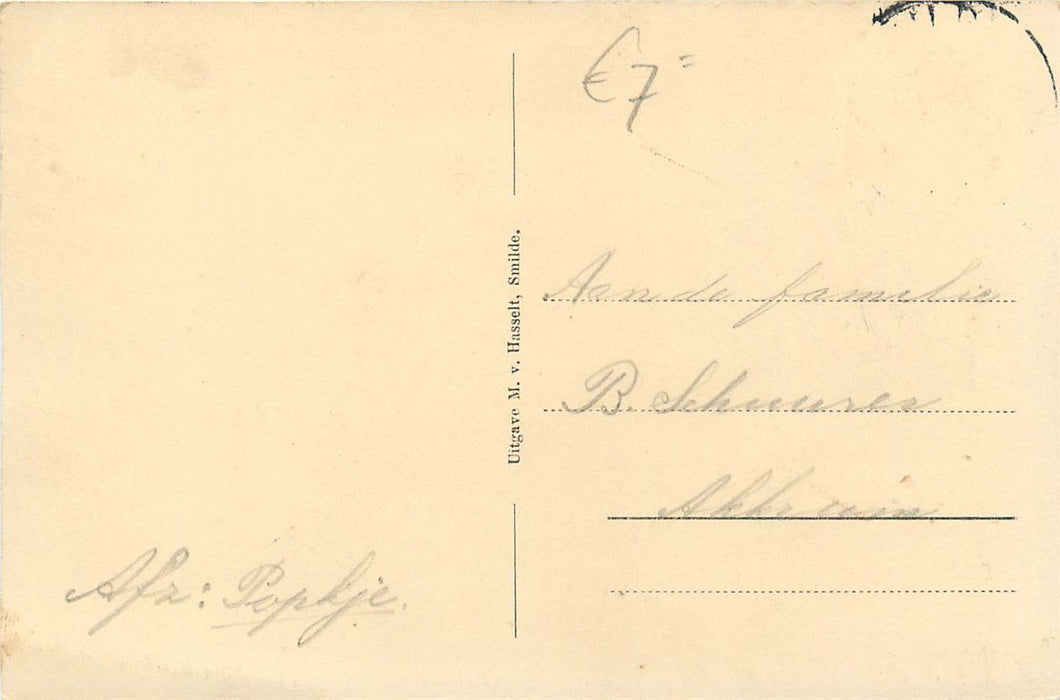 €7=
Uitgave M. v. Hasselt, Smilde.
Aan de familie
B. Schuurer
Akkrum.
Afz: Popkje.